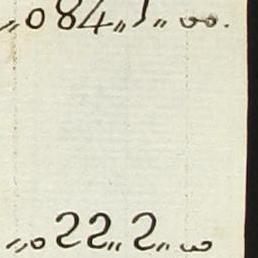 „084„1„00.
„022„2„00